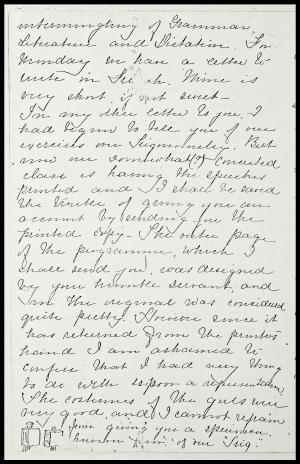 intermingling of Grammar,
Literature and Dictation. For
Monday we have a letter to
write in French. Mine is
very short, if not sweet.
In my other letter to you, I
had begun to tell you of our
exercises on Trigonometry. But
now our somewhat (?) conceited
class is having the speeches
printed and I shall be saved
the trouble of giving you an
account by sending you the
printed copy. The outer page
of the programme, which I
shall send you, was designed
by your humble servant, and
the original was considered
quite pretty. However since it
has returned from the printers
hand I am ashamed to
confess that I had any thing
to do with such a representation.
The costumes of the girls were
very good, and I cannot refrain
from giving you a specimen,
known as "Sim" of our "Trig".